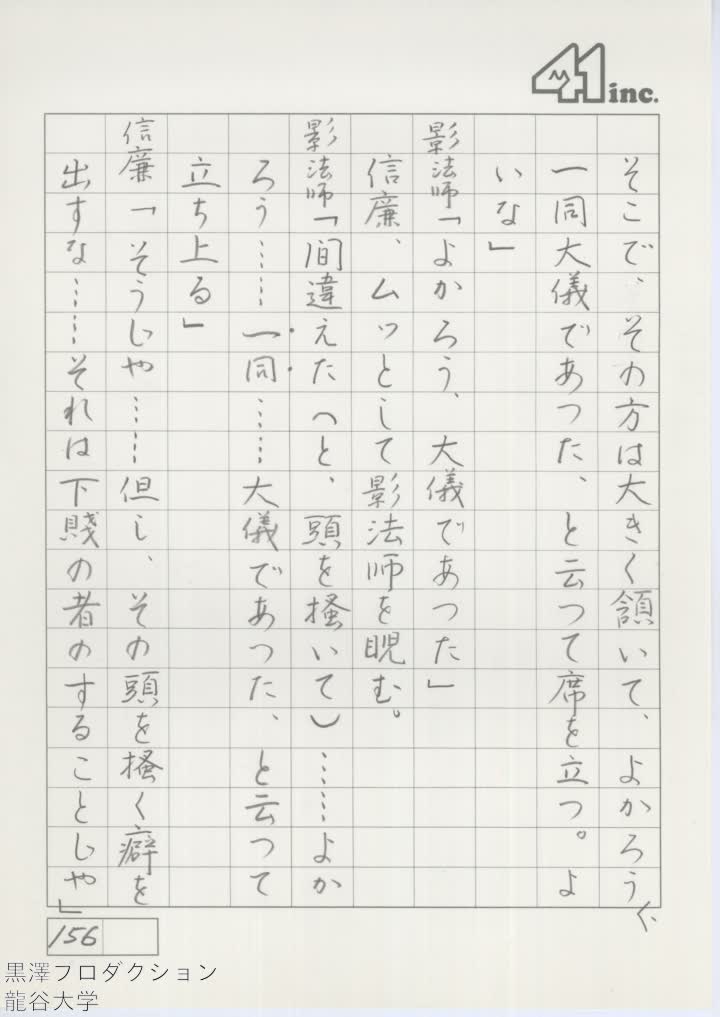 41 inc.
そこで、その方は大きく頷いて、よかろう、
一同大儀であつた、と云つて席を立つ。よ
いな」
影法師「よかろう、大儀であつた」
信廉、ムッとして影法師を睨む。
影法師「間違えた（と、頭を掻いて）……よか
ろう……一同……大儀であつた、と云つて
立ち上る」
信廉「そうじや……但し、その頭を掻く癖を
出すな……それは下賤の者のすることじや」
156
黒澤プロダクション
龍谷大学